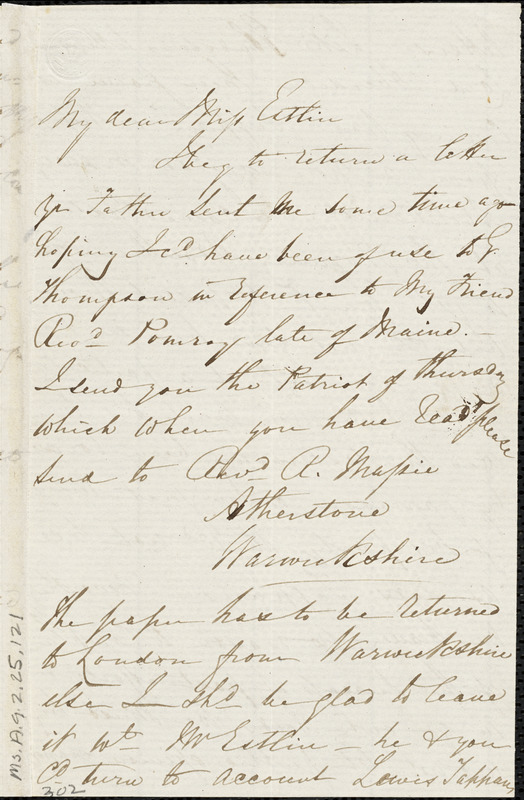 My dear Miss Estlin
I beg to return a letter
yr Father sent me some time ago
hoping I cd have been of use to G
Thompson in reference to My Friend
Revd Pomroy late of Maine. —
I send you the Patriot of Thursday
which when you have read please
send to Revd R. Massie
Atherstone
Warwickshire
The paper has to be returned
to London from Warwickshire
else I shd be glad to leave
it wth Mr Estlin — he & you
cd turn to account Lewis Tappans
Ms.A.9.2.25.121
302